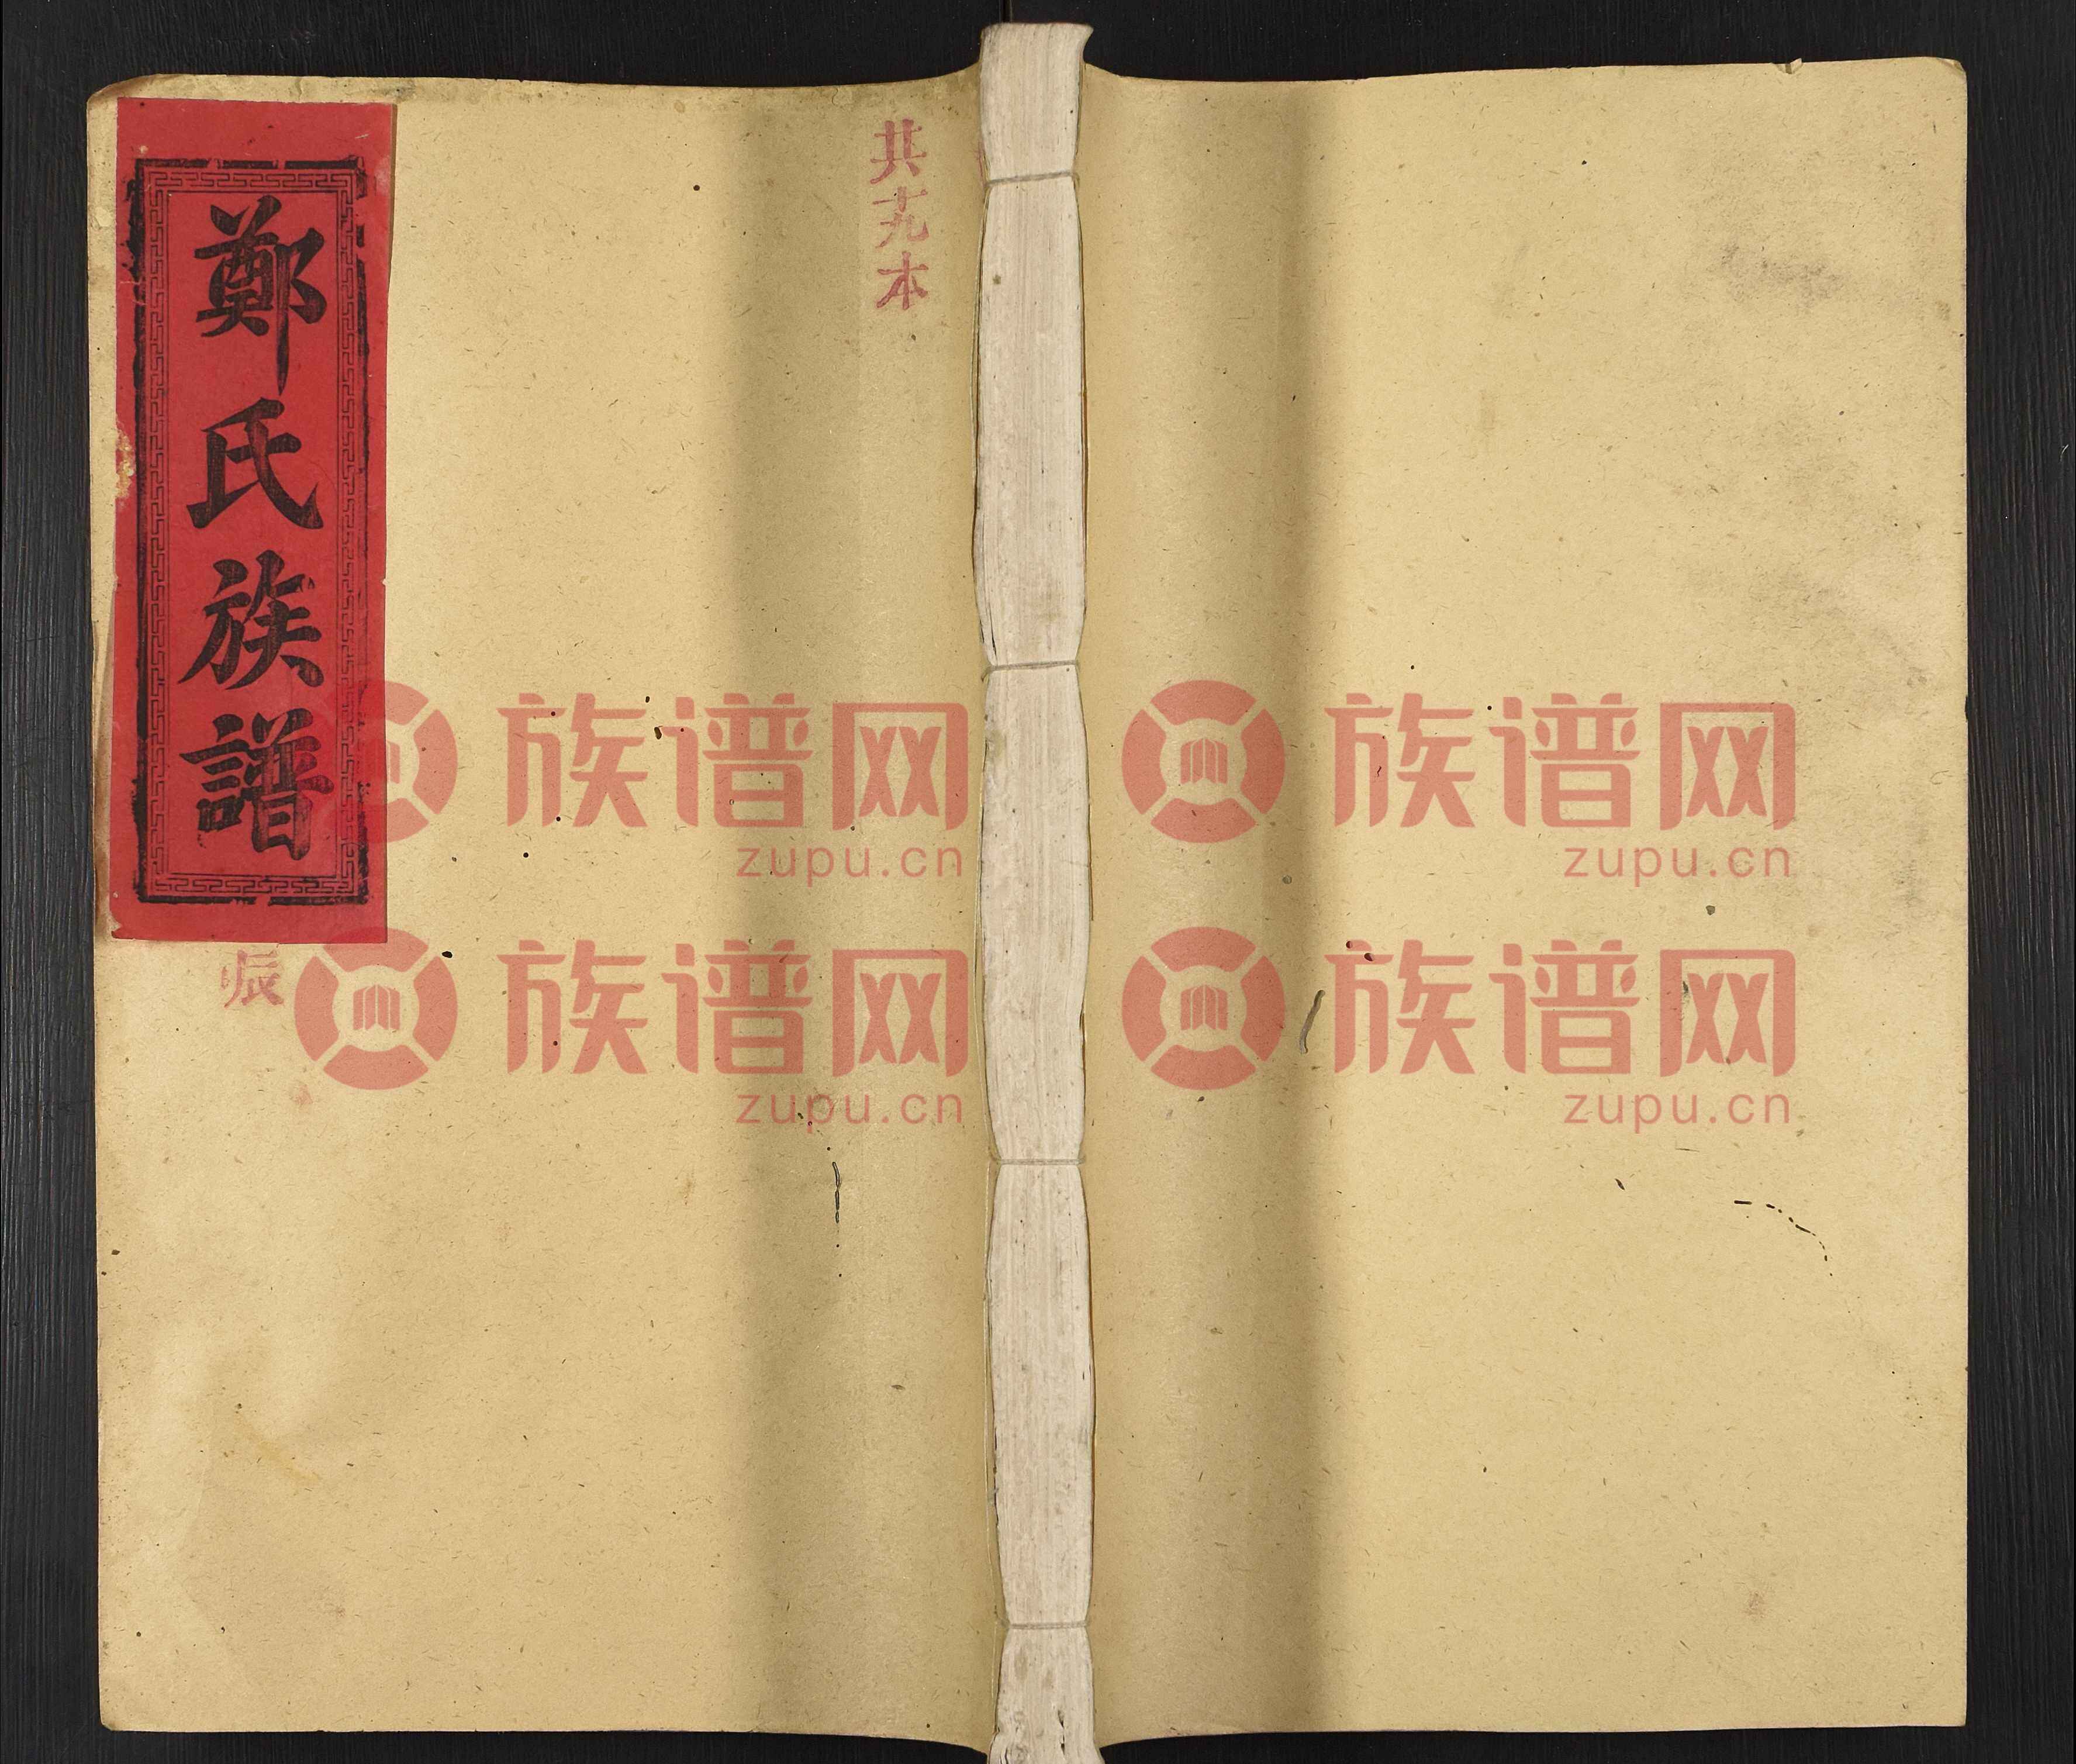 鄭氏族譜
共十九本
族谱网
zupu.cn
族谱网
zupu.cn
族谱网
zupu.cn
族谱网
zupu.cn